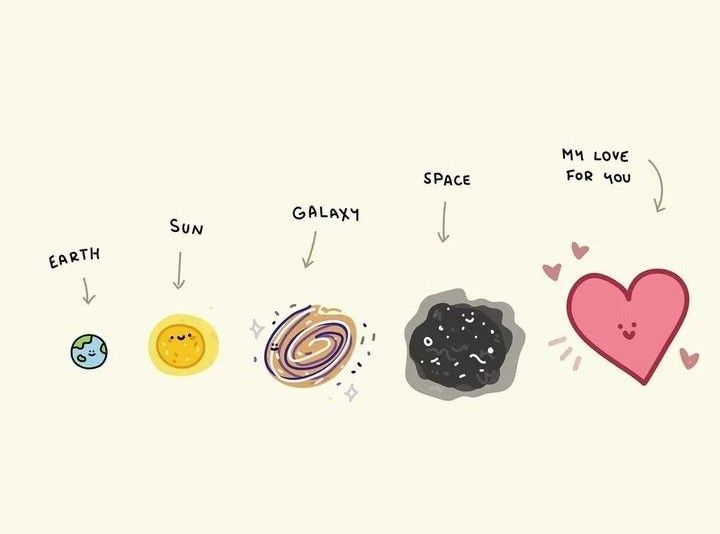 EARTH
SUN
GALAXY
SPACE
MY LOVE
FOR YOU